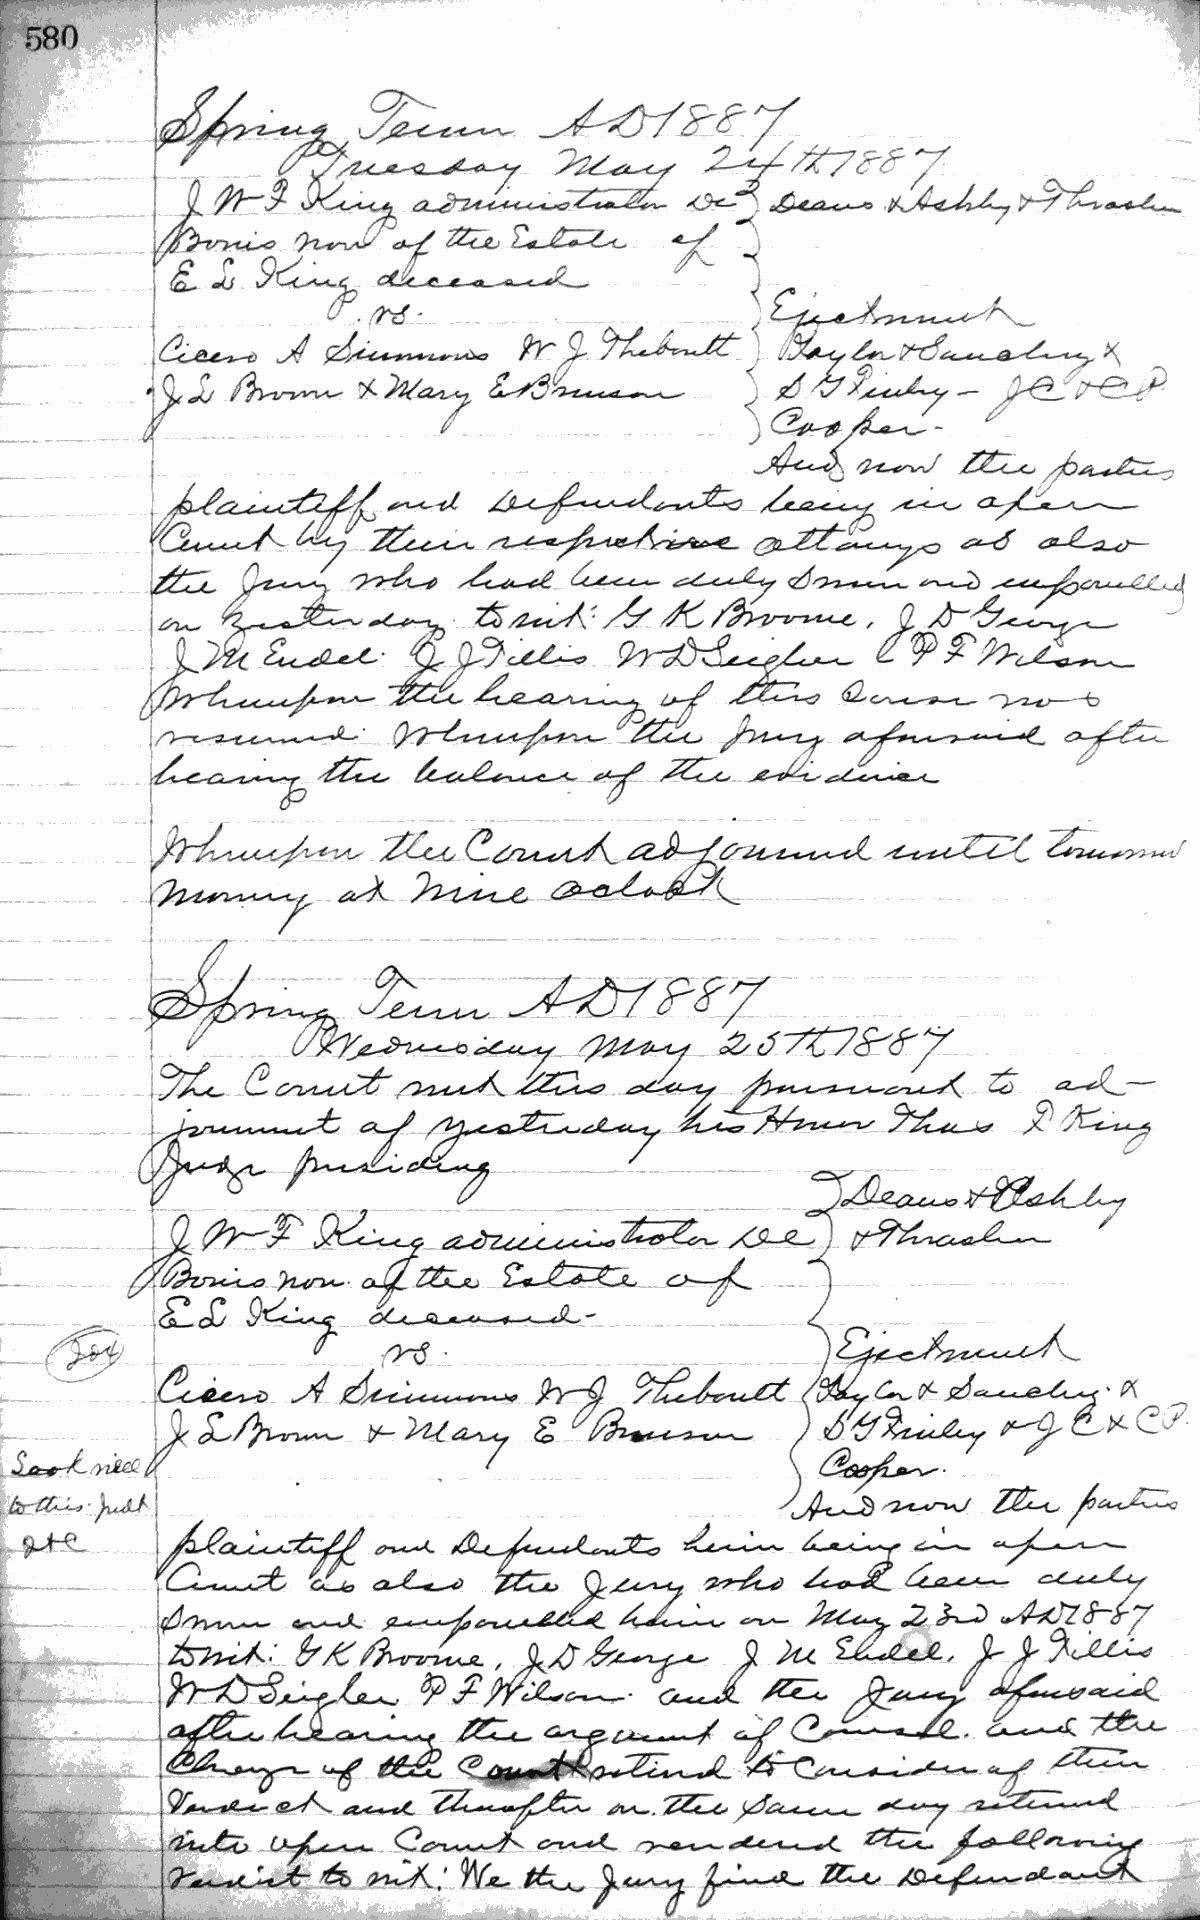 580
Spring Term AD 1887
Tuesday May 24th 1887
J W F King administrator De } Deans & Ashby & Thrasher
Bonis non of the Estate of
E L King deceased
vs. Ejectment
Cicero A Simmons W J Theboutt } Taylor & Sanchez &
J L Brown & Mary E Brunson } S G Finley - J C & C P
Cooper -
And now the parties
plaintiff and Defendants being in open
Court by their respective attorneys as also
the Jury who had been duly sworn and empanelled
on yesterday towit: G K Broome, J D George
J M Endel. J J Tillis W D Seigler P F Wilson
Whereupon the hearing of this cause was
resumed. Whereupon the jury aforesaid after
hearing the balance of the evidence
Whereupon the Court adjourned until tomorrow
Morning at Nine Oclock
Spring Term AD 1887
Wednesday May 25th 1887
The Court met this day pursuant to ad-
journment of yesterday his Honor Thos F King
Judge presiding
} Deans & Ashby
J W F King administrator De } & Thrasher
Bonis non of the Estate of
E L King deceased -
204
vs. Ejectment
Cicero A Simmons W J Theboutt } Taylor & Sanchez. &
J L Brown & Mary E Brunson } S G Finley & J C & C P.
Look well Cooper.
to this Judt And now the parties
J & C plaintiff and Defendants herein being in open
Court as also the Jury who had been duly
sworn and empanelled herein on May 23rd AD 1887
towit: G K Broome, J D George J M Endel, J J Tillis
W D Seigler P F Wilson. and the Jury aforesaid
after hearing the argument of Counsel. and the
Charge of the Court retired to Consider of their
Verdict and thereafter on the same day returned
into open Court and rendered the following
verdict to wit: We the Jury find the Defendant